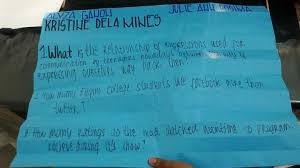 ALYZA GAHON JULIE ANN
KRISTINE DELA MINES
1. What is the relationship of expressions used for
communication by teenagers nowadays between the way of
expressing ourselves way back then?
2. How many Filipino college students use facebook more than
twitter?
3. How many ratings do the most watched noontime tv program
receive during it's show?